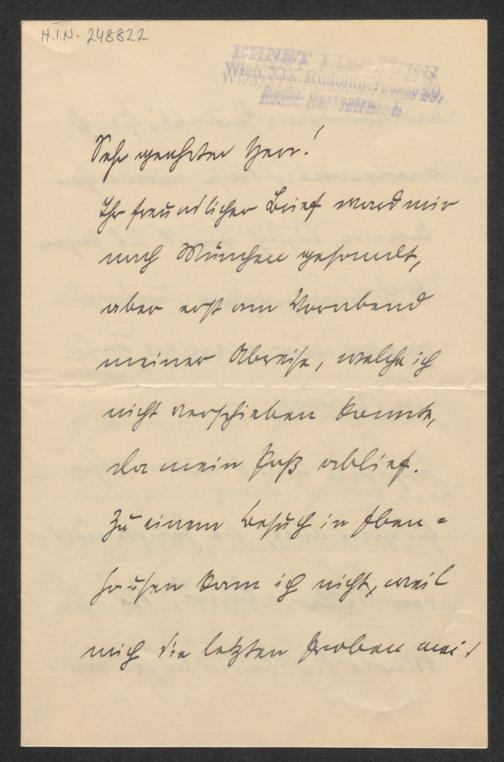 H.I.N. - 248822
ERNST LISSAUER
Wien, XIX,
Sehr geehrter Herr!
Ihr freundlicher Brief ward mir
nach München gesandt,
aber erst am Vorabend
meiner Abreise, welche ich
nicht verschieben konnte,
da mein Paß ablief.
Zu einem Besuch in Eben-
hausen kam ich nicht, weil
mich die letzten Proben